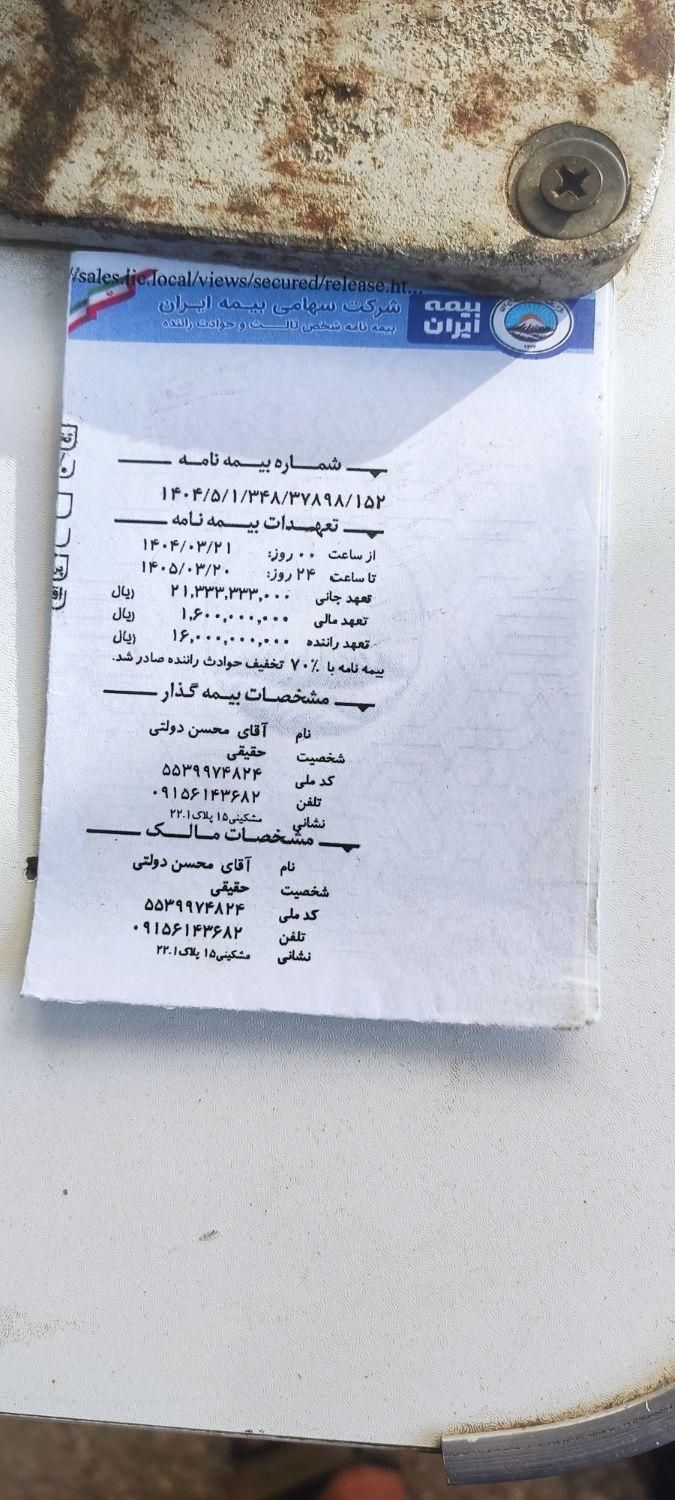 //sales.iic.local/views/secured/release.ht...
شرکت سهامی بیمه ایران
بیمه نامه شخص ثالث و حوادث راننده
بیمه ایران
شماره بیمه نامه
۱۴۰۴/۵/۱/۳۴۸/۳۷۸۹۸/۱۵۲
تعهدات بیمه نامه
از ساعت ۰۰ روز: ۱۴۰۴/۰۳/۲۱
تا ساعت ۲۴ روز: ۱۴۰۵/۰۳/۲۰
تعهد جانی ۲۱,۳۳۳,۳۳۳,۰۰۰ ریال
تعهد مالی ۱,۶۰۰,۰۰۰,۰۰۰ ریال
تعهد راننده ۱۶,۰۰۰,۰۰۰,۰۰۰ ریال
بیمه نامه با ۷۰٪ تخفیف حوادث راننده صادر شد.
مشخصات بیمه گذار
نام آقای محسن دولتی
شخصیت حقیقی
کد ملی ۵۵۳۹۹۷۴۸۲۴
تلفن ۰۹۱۵۶۱۴۳۶۸۲
نشانی مشکینی۱۵ پلاک۲۲.۱
مشخصات مالک
نام آقای محسن دولتی
شخصیت حقیقی
کد ملی ۵۵۳۹۹۷۴۸۲۴
تلفن ۰۹۱۵۶۱۴۳۶۸۲
نشانی مشکینی۱۵ پلاک۲۲.۱